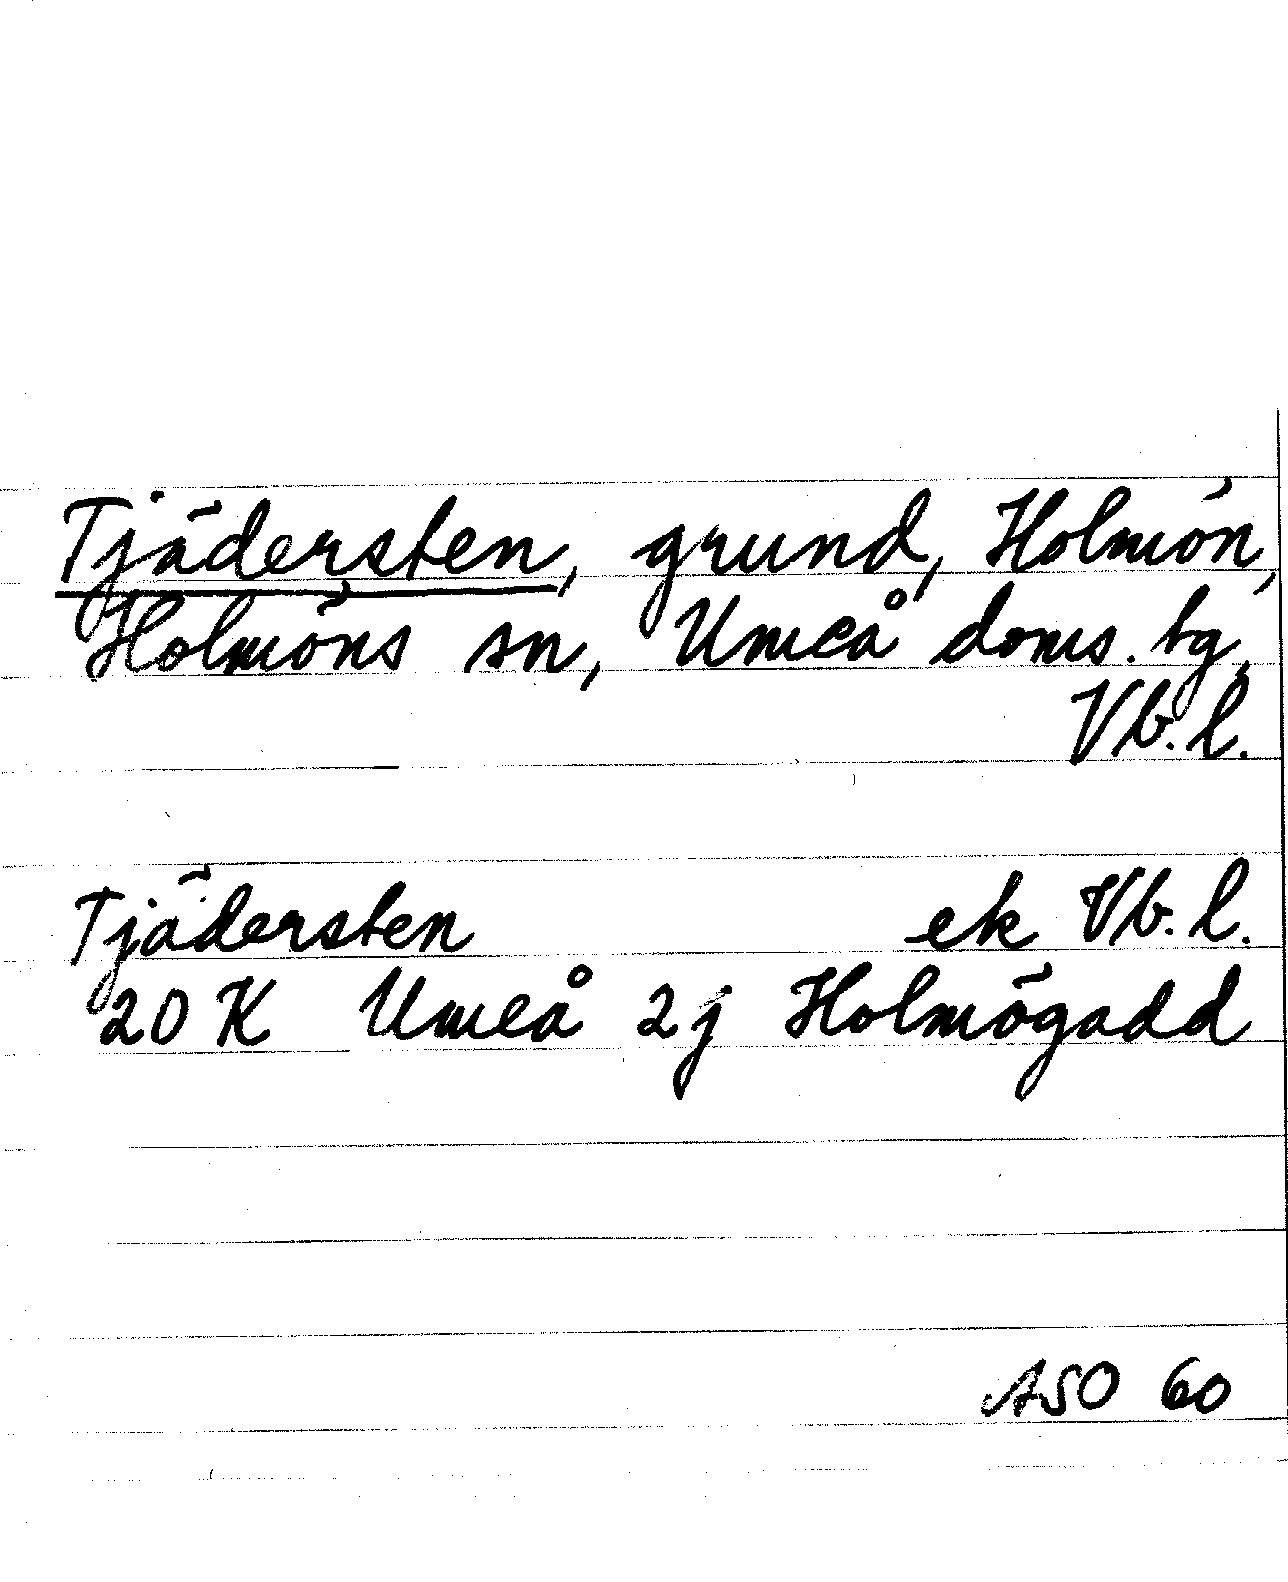 Tjädersten, grund, Holmön,
Holmöns sn, Umeå doms. tg,
Vb. l.
Tjädersten ek Vb. l.
20 K Umeå 2j Holmögadd
ASO 60